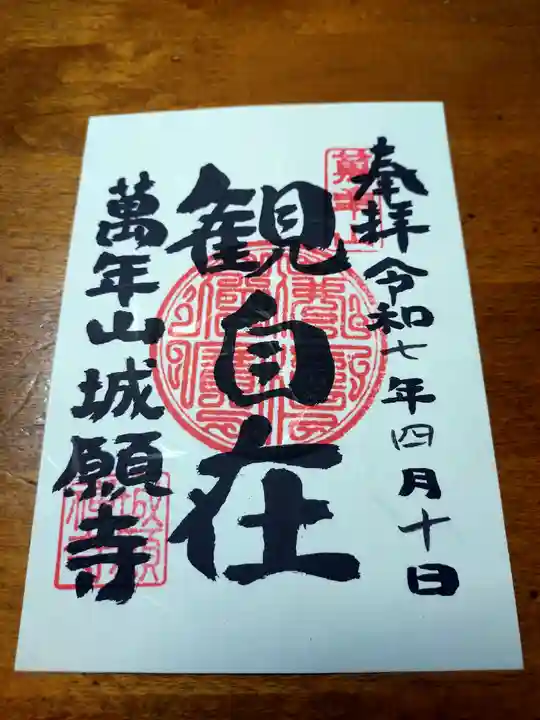 奉拝令和七年四月十日
観自在
萬年山城願寺